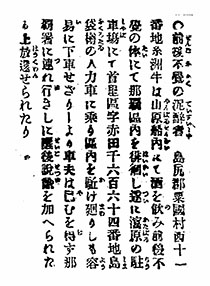 ◎前後不覺の泥醉者　島尻郡粟國村西十一
番地糸洲牛は山原船內にて酒を飲み前後不
覺の体にて那覇區內を徘徊し遂に渡原の駐
車塲にて首里區字赤田千六百六十四番地島
袋樽の人力車に乘り區內を駈け廻りしも容
易に下車せざりしより車夫は已むを得ず那
覇署に連れ行きしに醒後說諭を加へられた
る上放還せられたり